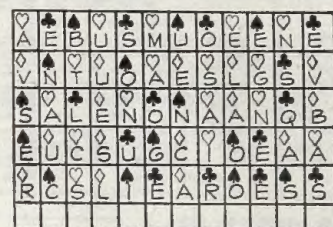 A E B U S M U O E E N E
V N T U O A E S L G S V
S A L E N O N A A N Q B
E U C S U G C I O E A A
R C S L I E A R O E S S